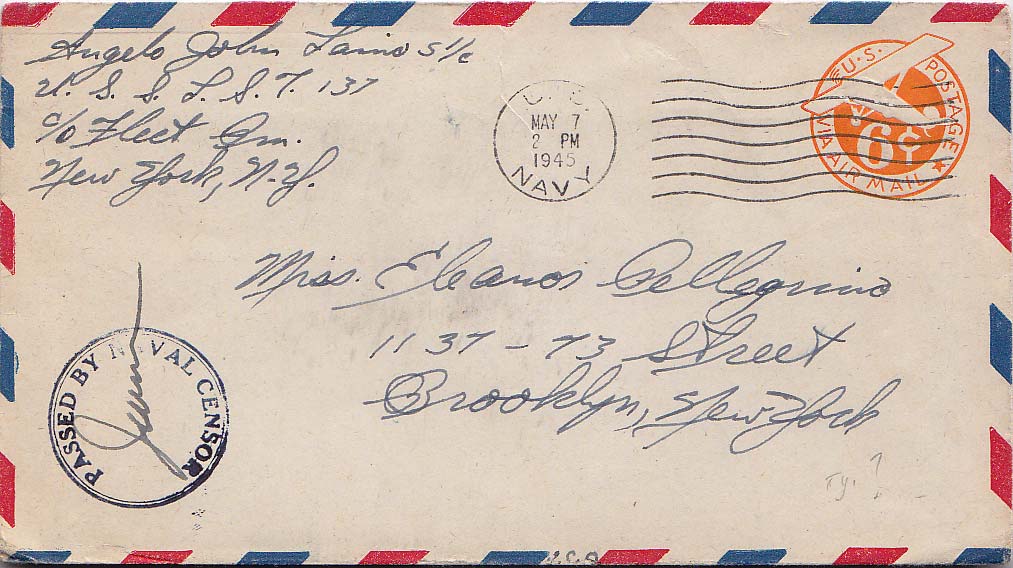 Angelo John Laino S 1/c
U. S. S. L. S. T. 137
c/o Fleet Pm.
New York, N.Y.
U.S.
MAY 7
2 PM
1945
NAVY
U.S. POSTAGE
6¢
VIA AIR MAIL
Miss. Eleanor Pellegrino
1137 - 73 Street
Brooklyn, New York
PASSED BY NAVAL CENSOR